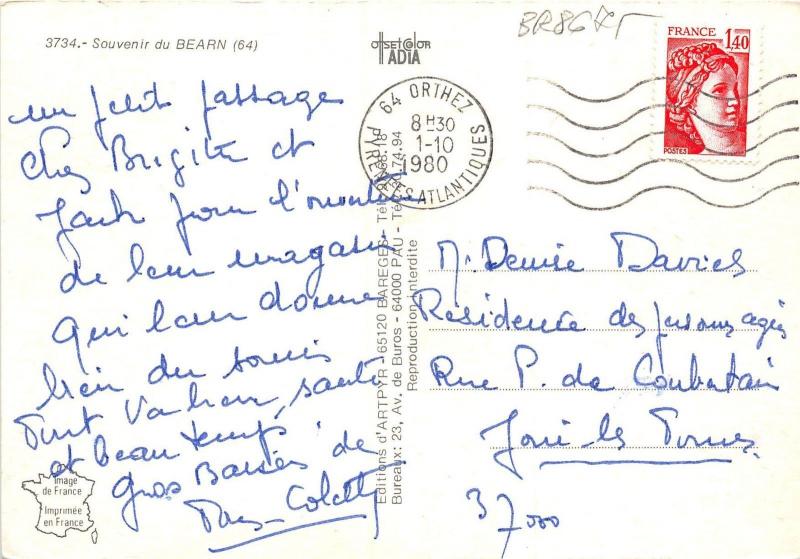 BR8675
3734.- Souvenir du BEARN (64)
OffsetColor
IADIA
FRANCE
1,40
POSTES
64 ORTHEZ
8H30
1-10
1980
PYRENEES ATLANTIQUES
un petit passage
chez Brigitte et
Jack pour l'ouverture
de leur magasin
qui leur donne
bien du soucis
Tout va bien, santé
et beau temps,
Gros Baisers de
Colette
Editions d'ARTPYR - 65120 BAREGES - Tél.
Bureaux: 23, Av. de Buros - 64000 PAU - Tél.
Reproduction interdite
Denise Davies
Résidence des
Rue P. de Coubertain
Joué les Tours
37000
Image
de France
Imprimée
en France